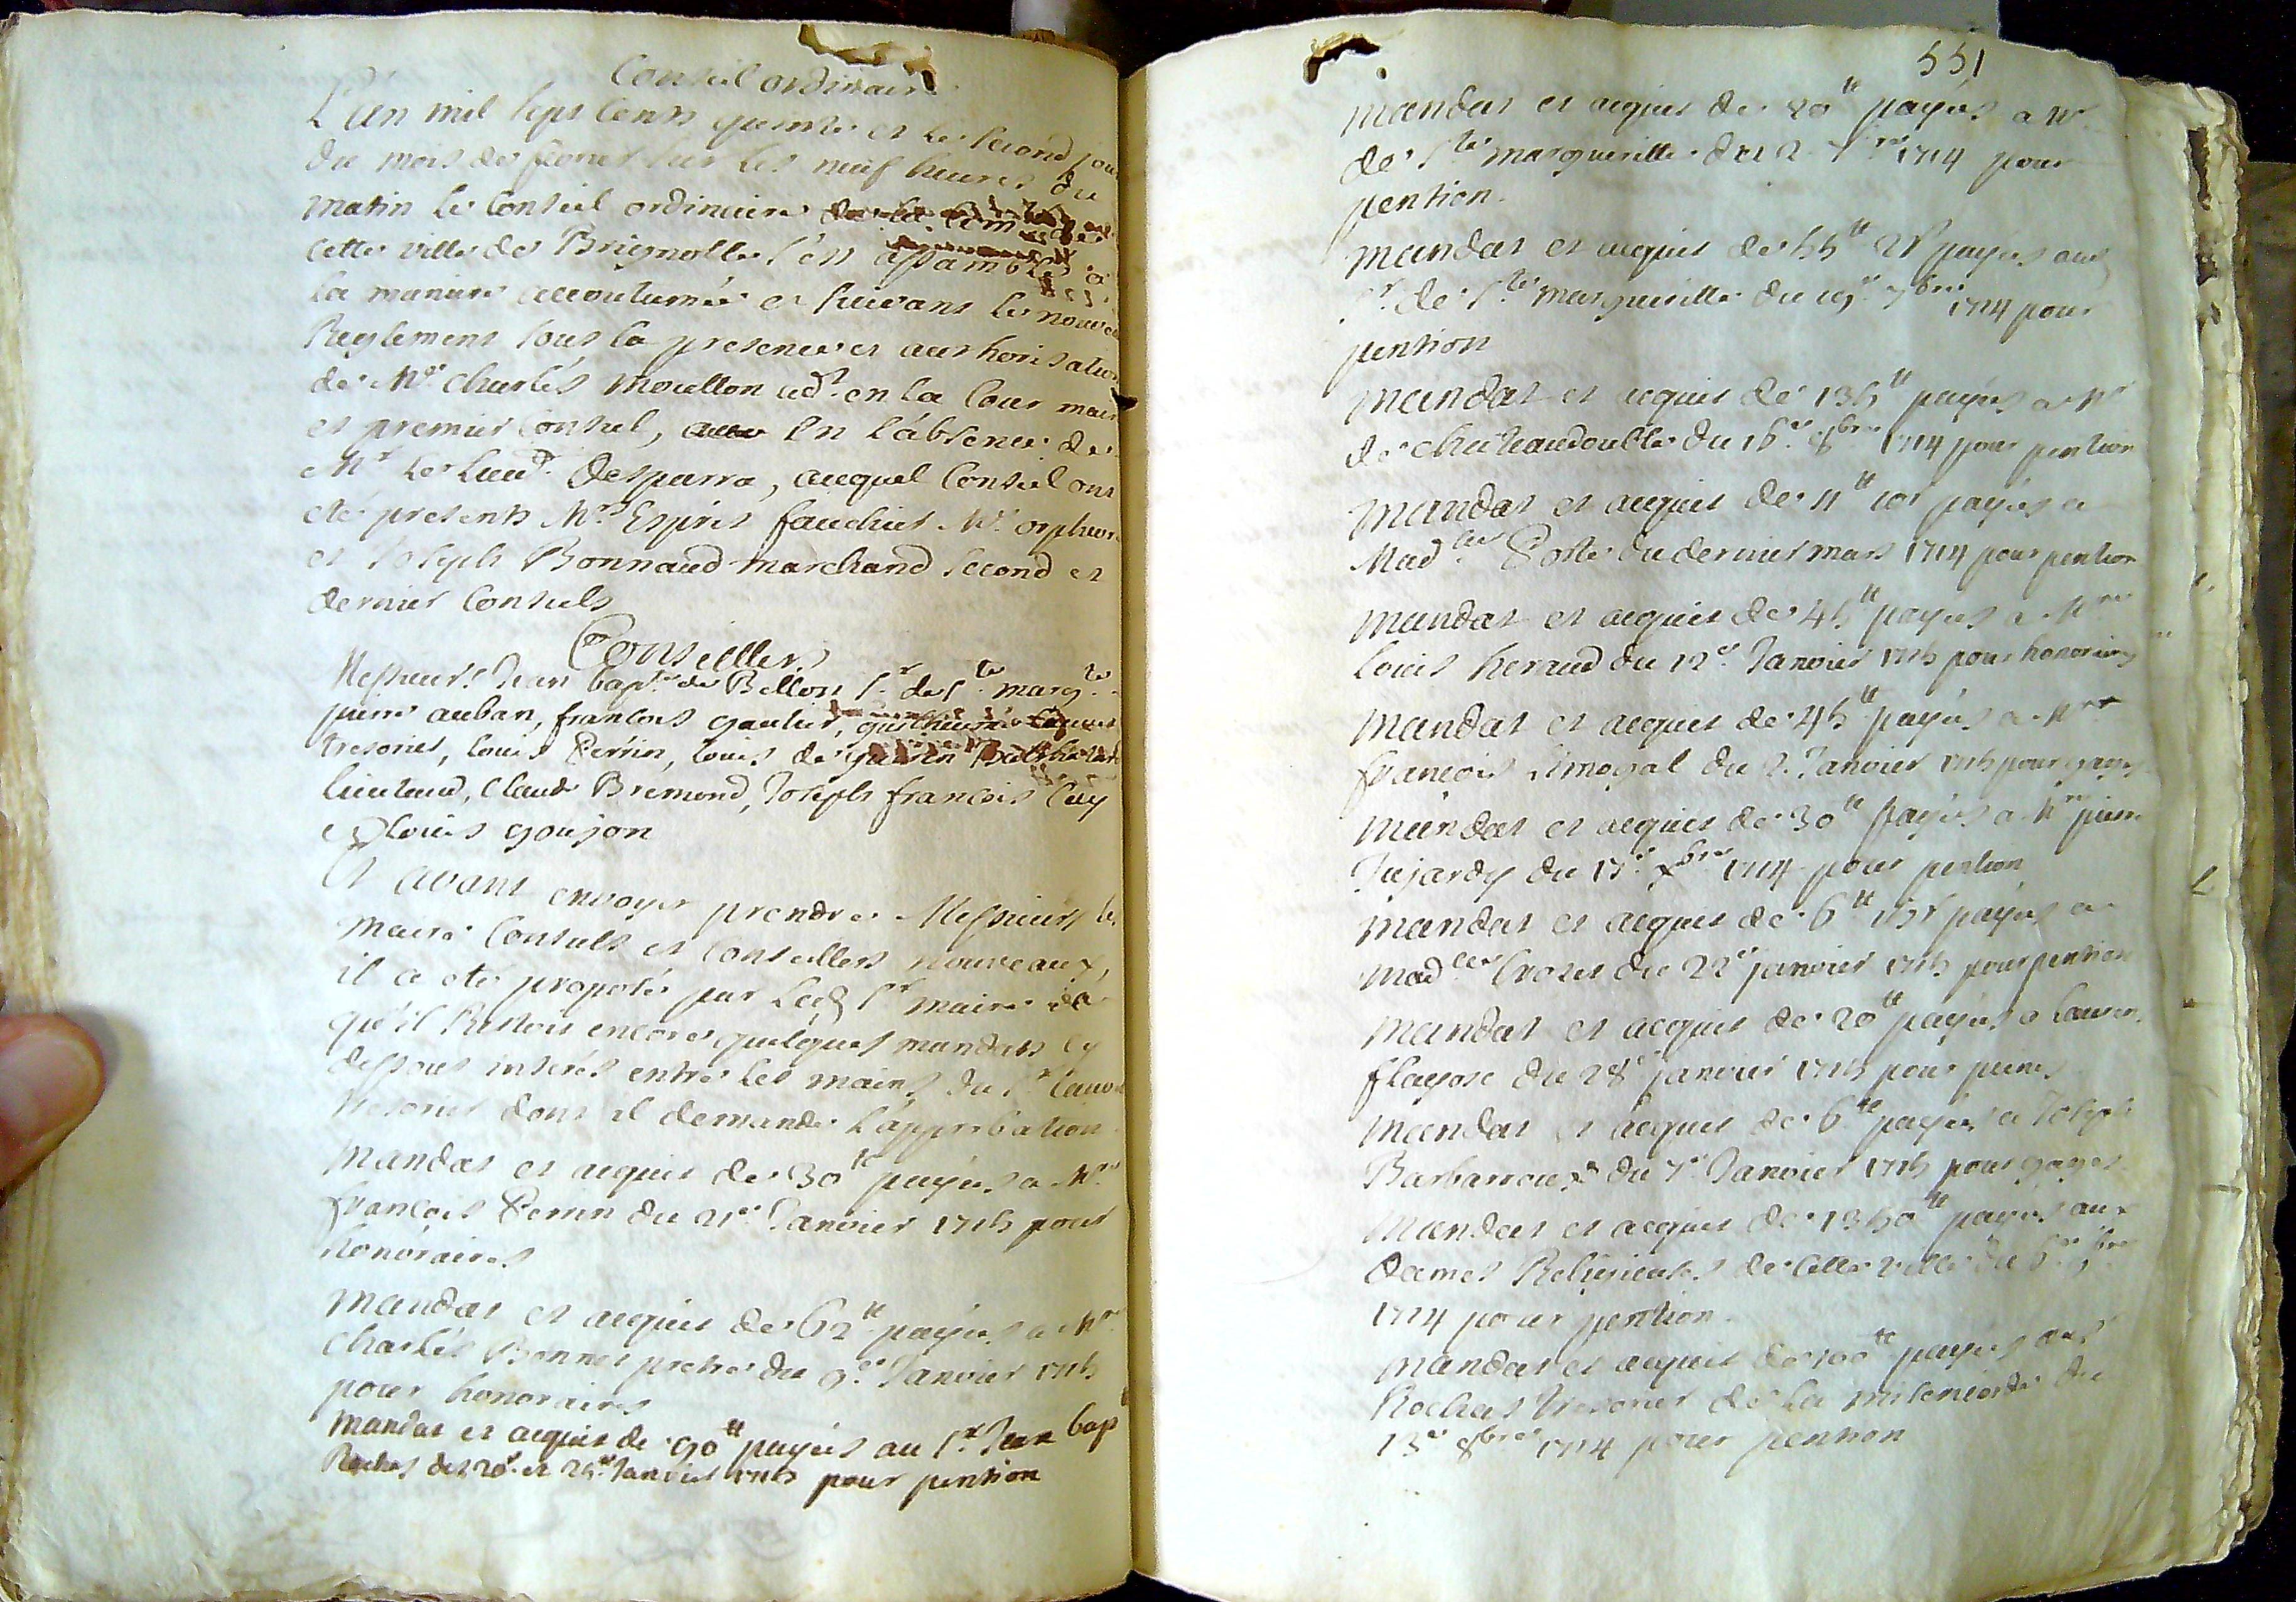 Conseil ordinaire
L'an mil sept cents quinze et le second jour
du mois de fevrier sur les neuf heures du
matin le Conseil ordinaire de la
cette ville de Brignolle s'est assamblé a
la maniere accoutumée et suivant le nouveau
Reglement sous la presence et authorisation
de Mr Charles Moullon adt en la Cour maire
et premier Consul, en l'absence de
Mr le Lieut Desparra, auquel Conseil ont
eté presents Mrs Esprit fauchier Me orpheuvre
et Joseph Bonnaud marchand second et
dernier Consuls
Conseillers
Messieurs Jean bapte de Bellon sr de ste margte
pierre auban, francois gautier,
tresorier, louis Perrin, louis de
lieutaud, Claude Bremond, Joseph francois
et louis goujon
Et avant envoyer prendre Messieurs les
maire Consuls et Conseillers nouveaux,
il a eté proposé par led sr maire
qu'il Restoit encore quelques mandats cy
dessous inserés entre les mains du sr
tresorier dont il demande l'approbation
Mandat et acquit de 30tt payés a Me
francois Perrin du 21e Janvier 1715 pour
honoraires
Mandat et acquit de 62tt payés a Mre
Charles Bonnet pretre du 9e Janvier 1715
pour honoraires
Mandat et acquit de 90tt payés au sr Jean bap
Rochas des 20e et 25e Janvier 1715 pour pention
551
Mandat et acquit de 20tt payés a Mr
de ste marguerille du 2 7bre 1714 pour
pention.
Mandat et acquit de 55tt 2s payés aud
sr de ste marguerille du 19e 7bre 1714 pour
pention
Mandat et acquit de 135tt payés a Mr
de chateaudouble du 15e 8bre 1714 pour pention
Mandat et acquit de 11tt 10s payés a
Madlle du dernier mars 1714 pour pention
Mandat et acquit de 45tt payés a Mre
louis heraud du 12e Janvier 1715 pour honoraires
Mandat et acquit de 45tt payés a Mre
francois du 2e Janvier 1715 pour gages
Mandat et acquit de 30tt payés a Mre pierre
Jujardy du 17e xbre 1714 pour pention
Mandat et acquit de 6tt 15s payés a
Madlle Crozet du 22e janvier 1715 pour pention
Mandat et acquit de 20tt payés a
flayosc du 28e janvier 1715 pour peines
Mandat et acquit de 6tt payés a Joseph
Barbarroux du 7e Janvier 1715 pour gages
Mandat et acquit de 1350tt payés aux
Dames Religieuses de cette ville du 6e 9bre
1714 pour pention.
Mandat et acquit de 100tt payés au sr
Rochas tresorier de la misericorde du
13e 8bre 1714 pour pention